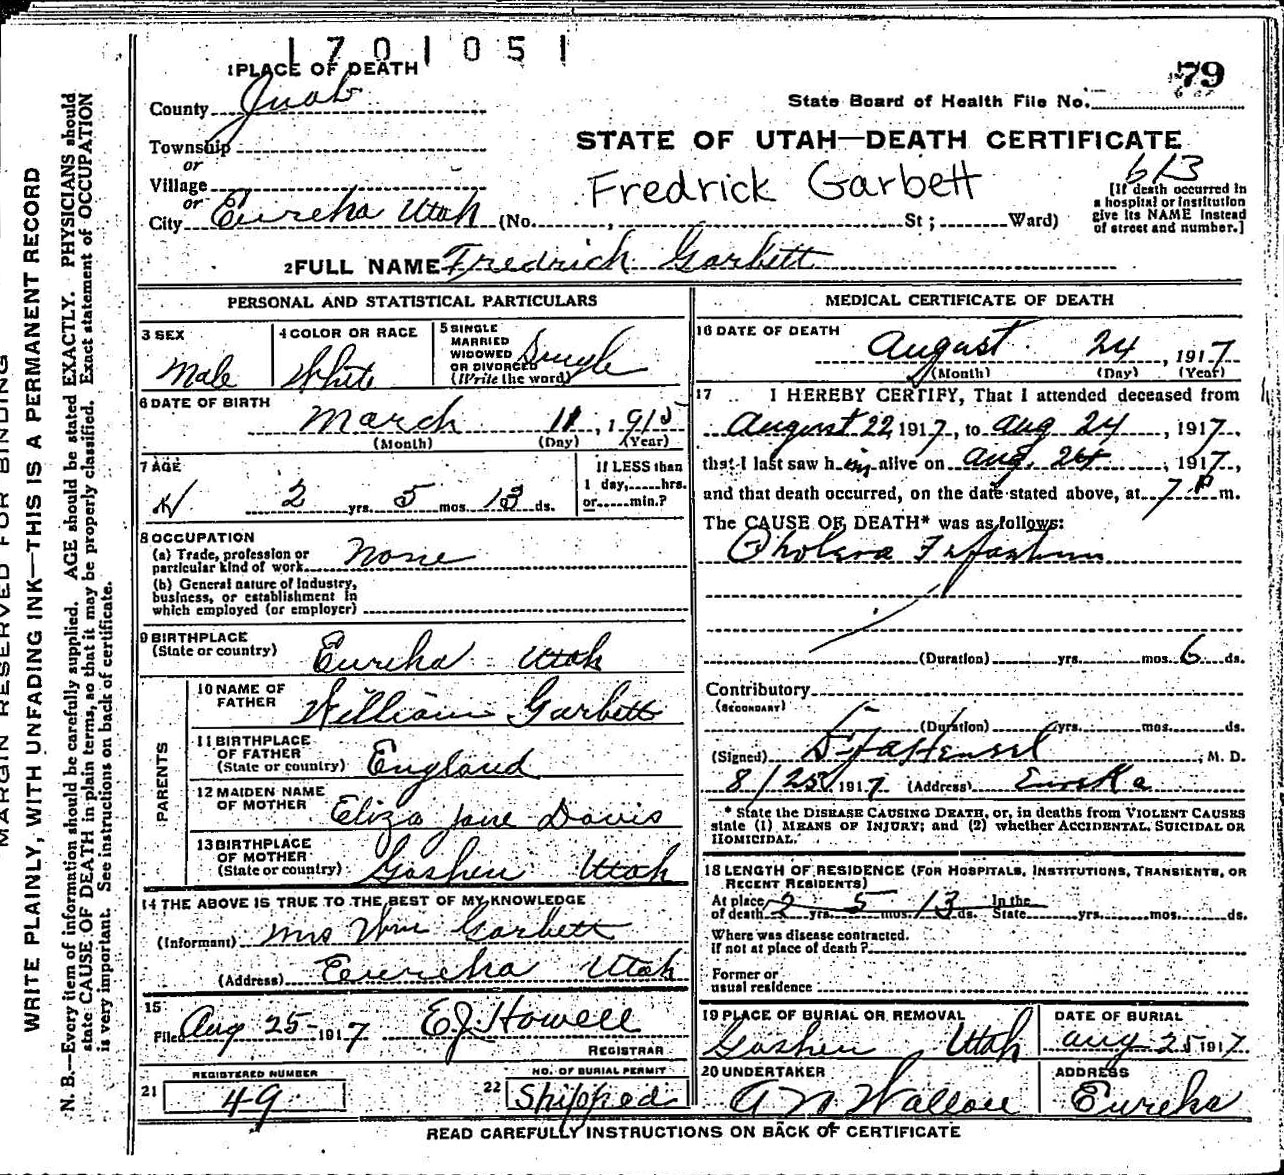 1701051
79
1 PLACE OF DEATH
County Juab
State Board of Health File No.
Township
or
Village
or
City Eureka Utah (No. , St ; Ward)
STATE OF UTAH—DEATH CERTIFICATE
Fredrick Garbett
613
[If death occurred in
a hospital or institution
give its NAME instead
of street and number.]
2 FULL NAME Fredrick Garbett
PERSONAL AND STATISTICAL PARTICULARS
3 SEX
Male
4 COLOR OR RACE
White
5 SINGLE
MARRIED
WIDOWED
OR DIVORCED
(Write the word)
Single
6 DATE OF BIRTH
March 11, 1915
(Month) (Day) (Year)
7 AGE
2 yrs. 5 mos. 13 ds.
If LESS than
1 day,......hrs.
or......min.?
8 OCCUPATION
(a) Trade, profession or
particular kind of work None
(b) General nature of Industry,
business, or establishment in
which employed (or employer)
9 BIRTHPLACE
(State or country) Eureka Utah
PARENTS
10 NAME OF
FATHER William Garbett
11 BIRTHPLACE
OF FATHER
(State or country) England
12 MAIDEN NAME
OF MOTHER Eliza Jane Davis
13 BIRTHPLACE
OF MOTHER
(State or country) Goshen Utah
14 THE ABOVE IS TRUE TO THE BEST OF MY KNOWLEDGE
(Informant) Mrs Wm Garbett
(Address) Eureka Utah
15
Filed Aug 25 - 1917 E.J. Howell
REGISTRAR
21 REGISTERED NUMBER
49
22 NO. OF BURIAL PERMIT
Shipped
MEDICAL CERTIFICATE OF DEATH
16 DATE OF DEATH
August 24, 1917
(Month) (Day) (Year)
17 I HEREBY CERTIFY, That I attended deceased from
August 22, 1917, to Aug 24, 1917,
that I last saw him alive on Aug. 24, 1917,
and that death occurred, on the date stated above, at 7 P m.
The CAUSE OF DEATH* was as follows:
Cholera Infantum
(Duration) yrs. mos. 6 ds.
Contributory
(SECONDARY)
(Duration) yrs. mos. ds.
(Signed) Hensel, M. D.
8/25/1917 (Address) Eureka
* State the DISEASE CAUSING DEATH, or, in deaths from VIOLENT CAUSES
state (1) MEANS OF INJURY; and (2) whether ACCIDENTAL, SUICIDAL OR
HOMICIDAL.
18 LENGTH OF RESIDENCE (FOR HOSPITALS, INSTITUTIONS, TRANSIENTS, OR
RECENT RESIDENTS)
At place In the
of death 2 yrs. 5 mos. 13 ds. State yrs. mos. ds.
Where was disease contracted.
If not at place of death ?
Former or
usual residence
19 PLACE OF BURIAL OR REMOVAL
Goshen Utah
DATE OF BURIAL
Aug 25 1917
20 UNDERTAKER
ADDRESS
Eureka
READ CAREFULLY INSTRUCTIONS ON BACK OF CERTIFICATE
MARGIN RESERVED FOR BINDING
WRITE PLAINLY, WITH UNFADING INK—THIS IS A PERMANENT RECORD
N. B.—Every item of information should be carefully supplied. AGE should be stated EXACTLY. PHYSICIANS should
state CAUSE OF DEATH in plain terms, so that it may be properly classified. Exact statement of OCCUPATION
is very important. See instructions on back of certificate.